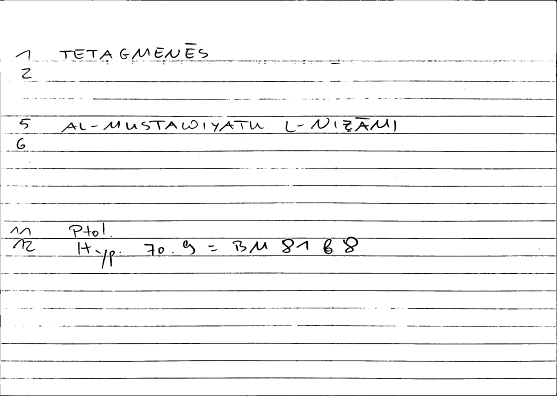 1 TETAGMENĒS
2
5 AL-MUSTAWIYATU L-NIẒĀMI
6
11 Ptol.
12 Hyp. 70.9 = BM 81 68